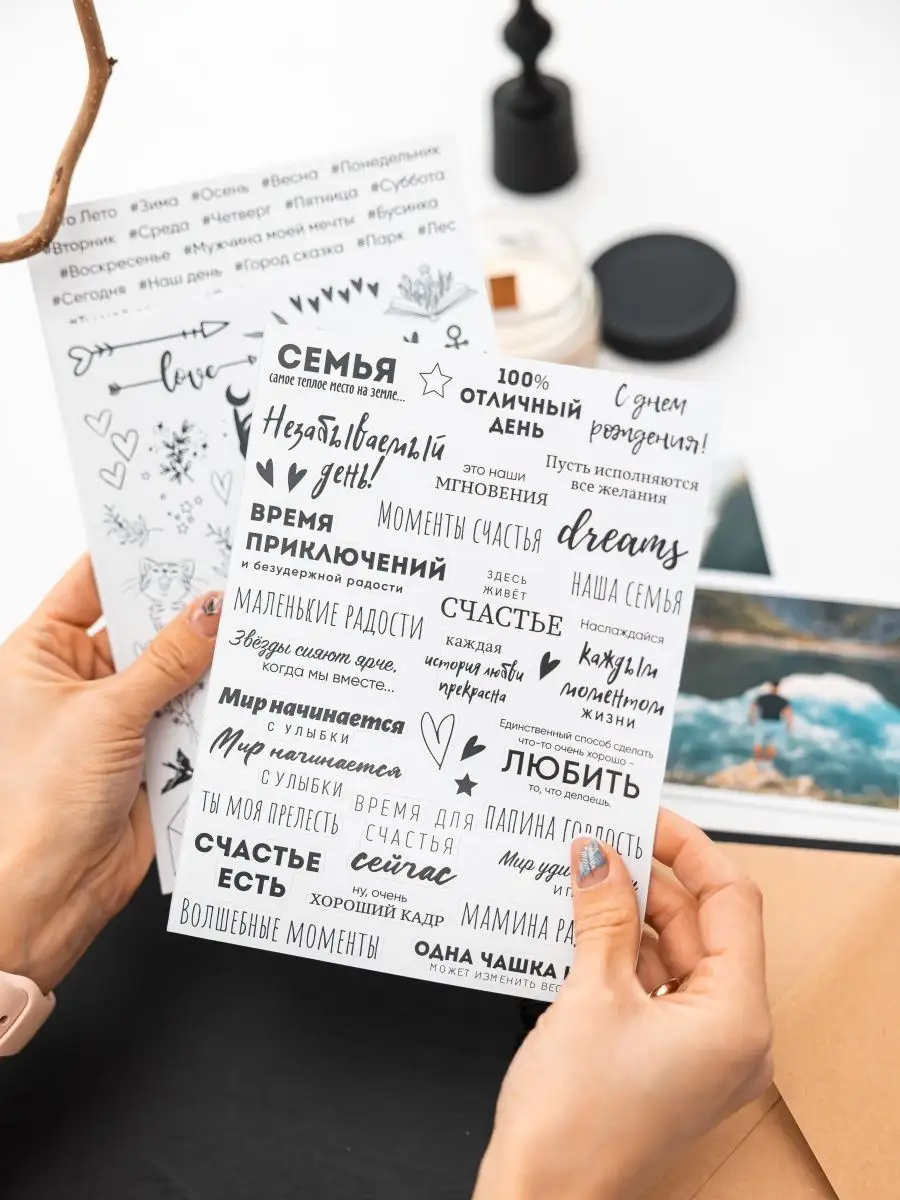 то Лето #Зима #Осень #Весна #Понедельник
#Вторник #Среда #Четверг #Пятница #Суббота
#Воскресенье #Мужчина моей мечты #Бусинка
#Сегодня #Наш день #Город сказка #Парк #Лес
love
СЕМЬЯ
самое теплое место на земле...
100%
ОТЛИЧНЫЙ
ДЕНЬ
С днем
рождения!
Незабываемый
день!
это наши
МГНОВЕНИЯ
Пусть исполняются
все желания
ВРЕМЯ
ПРИКЛЮЧЕНИЙ
и безудержной радости
МОМЕНТЫ СЧАСТЬЯ
dreams
ЗДЕСЬ
ЖИВЁТ
СЧАСТЬЕ
НАША СЕМЬЯ
МАЛЕНЬКИЕ РАДОСТИ
Звёзды сияют ярче,
когда мы вместе...
каждая
история любви
прекрасна
Наслаждайся
каждым
моментом
жизни
Мир начинается
С УЛЫБКИ
Мир начинается
С УЛЫБКИ
Единственный способ сделать
что-то очень хорошо –
ЛЮБИТЬ
то, что делаешь.
ТЫ МОЯ ПРЕЛЕСТЬ
ВРЕМЯ ДЛЯ
СЧАСТЬЯ
сейчас
ПАПИНА ГОРДОСТЬ
СЧАСТЬЕ
ЕСТЬ
ну, очень
ХОРОШИЙ КАДР
Мир
И
МАМИНА
ВОЛШЕБНЫЕ МОМЕНТЫ
ОДНА ЧАШКА
МОЖЕТ ИЗМЕНИТЬ